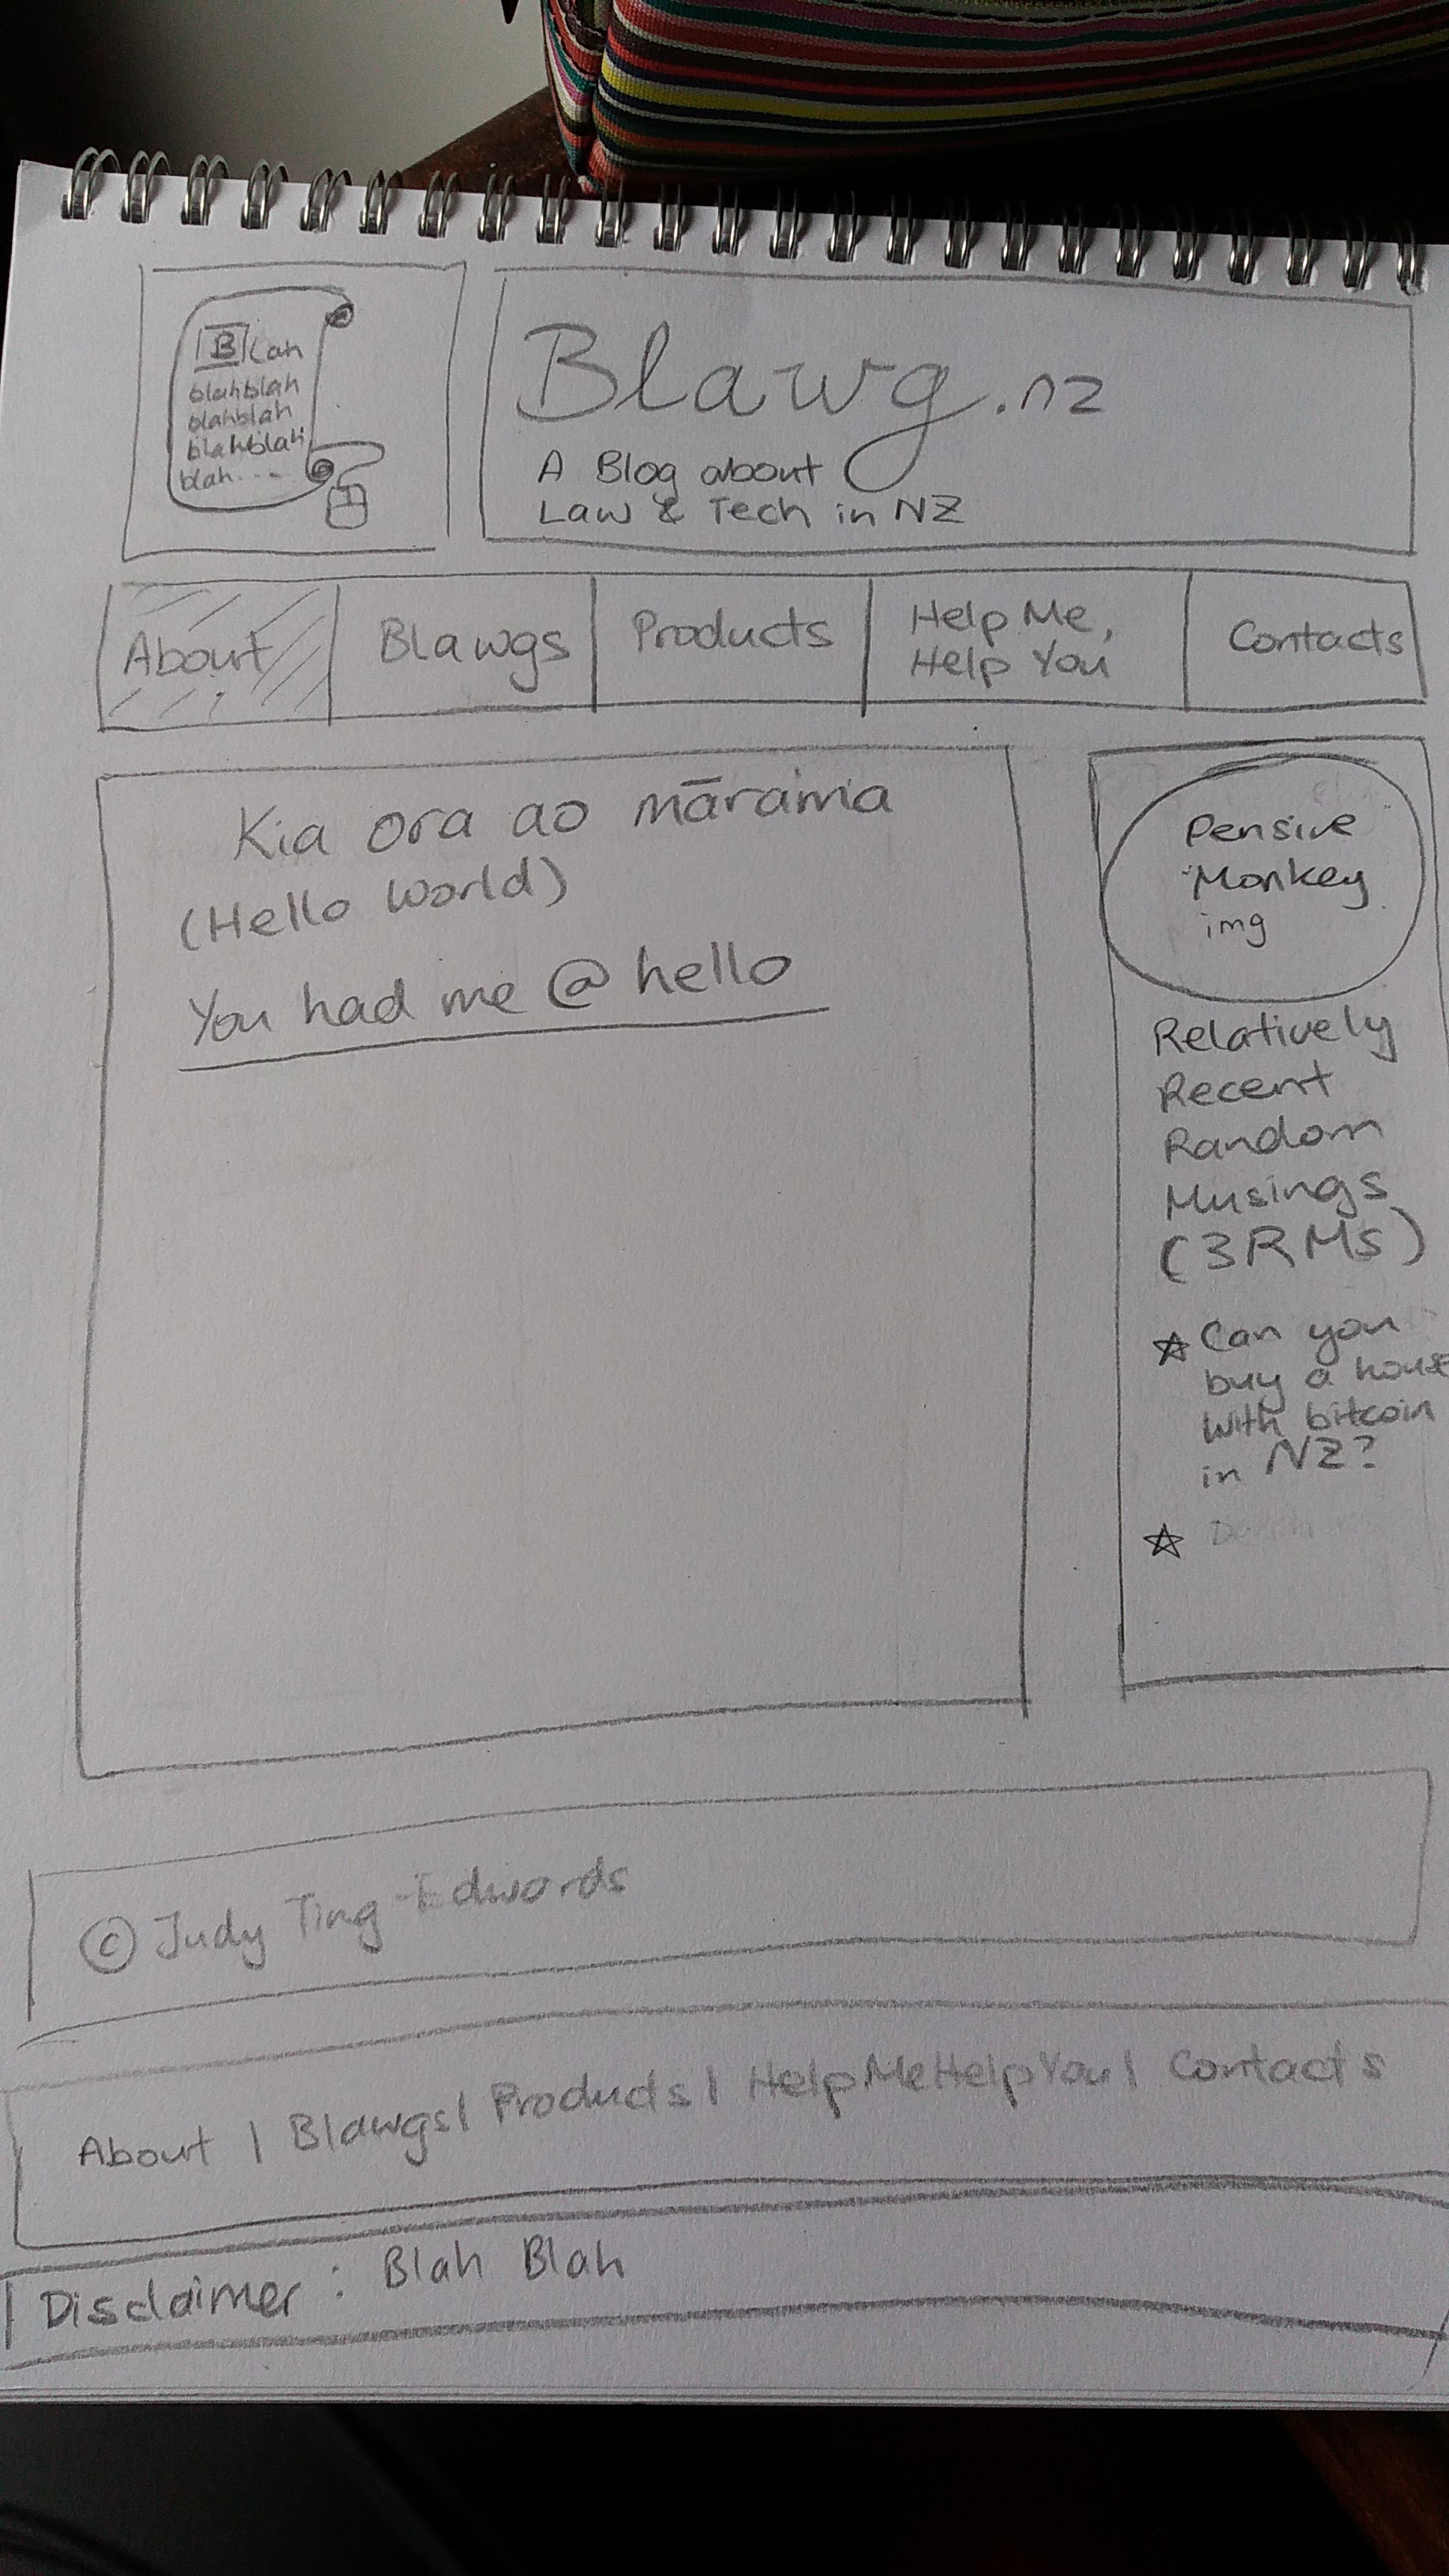 Blah
blahblah
blahblah
blahblah
blah....
Blawg.nz
A Blog about
Law & Tech in NZ
About
Blawgs
Products
Help Me,
Help You
Contacts
Kia ora ao mārama
(Hello World)
You had me @ hello
Pensive
Monkey
img
Relatively
Recent
Random
Musings
(3RMs)
☆ Can you
buy a house
with bitcoin
in NZ?
☆
© Judy Ting-Edwards
About | Blawgs | Products | HelpMeHelpYou | Contacts
Disclaimer: Blah Blah